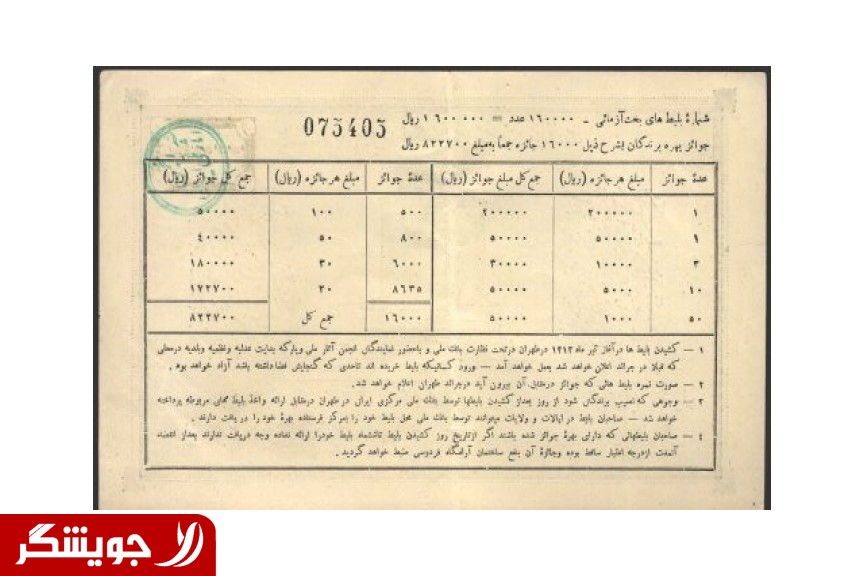 شمارهٔ بلیط های بخت آزمائی – ۱۶۰۰۰۰ عدد = ۱۶۰۰۰۰۰ ریال
075405
جوائز بهره برندگان بشرح ذیل ۱۶۰۰۰ جائزه جمعاً به مبلغ ۸۲۲۷۰۰ ریال
عدهٔ جوائز مبلغ هر جائزه (ریال) جمع کل مبلغ جوائز (ریال) عدهٔ جوائز مبلغ هر جائزه (ریال) جمع کل جوائز (ریال)
۱ ۲۰۰۰۰۰ ۲۰۰۰۰۰ ۵۰۰ ۱۰۰ ۵۰۰۰۰
۱ ۵۰۰۰۰ ۵۰۰۰۰ ۸۰۰ ۵۰ ۴۰۰۰۰
۳ ۱۰۰۰۰ ۳۰۰۰۰ ۶۰۰۰ ۳۰ ۱۸۰۰۰۰
۱۰ ۵۰۰۰ ۵۰۰۰۰ ۸۶۳۵ ۲۰ ۱۷۲۷۰۰
۵۰ ۱۰۰۰ ۵۰۰۰۰ ۱۶۰۰۰ جمع کل ۸۲۲۷۰۰
۱ – کشیدن بلیط ها در آغاز تیر ماه ۱۳۱۳ در طهران در تحت نظارت بانک ملی و با حضور نمایندگان انجمن آثار ملی و پارکه بدایت عدلیه و نظمیه و بلدیه در محلی
که قبلا در جرائد اعلان خواهد شد بعمل خواهد آمد – ورود کسانیکه بلیط خریده اند تا حدی که گنجایش فضا داشته باشد آزاد خواهد بود .
۲ – صورت نمره بلیط هائی که جوائز در مقابل آن بیرون آید در جرائد طهران اعلام خواهد شد.
۳ – وجوهی که نصیب برندگان شود از روز بعد از کشیدن بلیطها توسط بانک ملی مرکزی ایران در طهران در مقابل ارائه و اخذ بلیط محای مربوطه پرداخته
خواهد شد – صاحبان بلیط در ایالات و ولایات میتوانند توسط بانک ملی محل بلیط خود را بمرکز فرستاده بهرهٔ خود را دریافت دارند .
۴ – صاحبان بلیطهائی که دارای بهرهٔ جوائز شده باشند اگر از تاریخ روز کشیدن بلیط تا ششماه بلیط خود را ارائه نداده وجه دریافت ندارند بعد از انقضاء
آنمدت از درجه اعتبار ساقط بوده و جائزهٔ آن بنفع ساختمان آرامگاه فردوسی ضبط خواهد گردید .
جویشگر